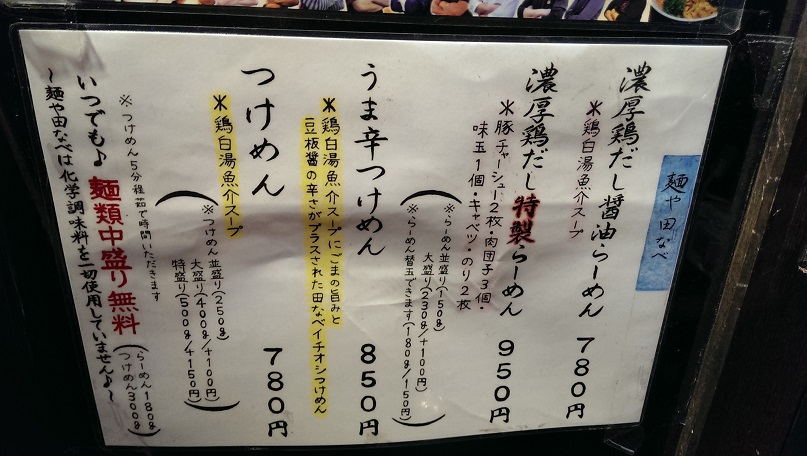 麺や 田なべ
濃厚鶏だし醤油らーめん 780円
＊鶏白湯魚介スープ
濃厚鶏だし特製らーめん 950円
＊豚チャーシュー2枚・肉団子3個・
味玉1個・キャベツ・のり2枚
(※らーめん並盛り(150g)
大盛り(230g/+100円)
※らーめん替玉できます(180g/150円))
うま辛つけめん 850円
＊鶏白湯魚介スープにごまの旨みと
豆板醤の辛さがプラスされた田なべイチオシつけめん
つけめん 780円
＊鶏白湯魚介スープ
(※つけめん並盛り(250g)
大盛り(400g/+100円)
特盛り(500g/+150円))
※つけめん5分程茹で時間いただきます
いつでも♪麺類中盛り無料(らーめん180g
つけめん300g)
～麺や田なべは化学調味料を一切使用していません♪～